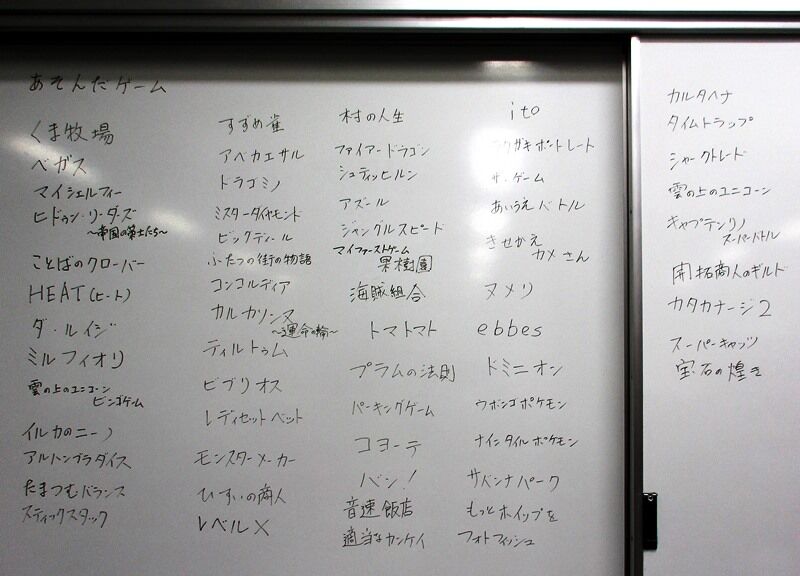 あそんだゲーム
くま牧場
ベガス
マイシェルフィー
ヒドゥン・リーダーズ
～帝国の策士たち～
ことばのクローバー
HEAT(ヒート)
ダ・ルイジ
ミルフィオリ
雲の上のユニコーン
ビンゴゲーム
イルカのニーノ
アルハンブラダイス
たまつむバランス
スティックスタック
すずめ雀
アベカエサル
ドラゴミノ
ミスターダイヤモンド
ビックディール
ふたつの街の物語
コンコルディア
カルカソンヌ
～運命の輪～
ティルトゥム
ビブリオス
レディセットベット
モンスターメーカー
ひすいの商人
レベルX
村の人生
ファイアードラゴン
シュティッヒルン
アズール
ジャングルスピード
マイファーストゲーム
果樹園
海賊組合
トマトマト
プラムの法則
パーキングゲーム
コヨーテ
バン!
音速飯店
適当なカンケイ
ito
ラクガキポートレート
ザ・ゲーム
あいうえバトル
きせかえ
カメさん
ヌメリ
ebbes
ドミニオン
ウボンゴポケモン
ナインタイルポケモン
サバンナパーク
もっとホイップを
フォトフィッシュ
カルタヘナ
タイムトラップ
シャークトレード
雲の上のユニコーン
キャプテンリノ
スーパーバトル
開拓商人のギルド
カタカナージ2
スーパーキャッツ
宝石の煌き